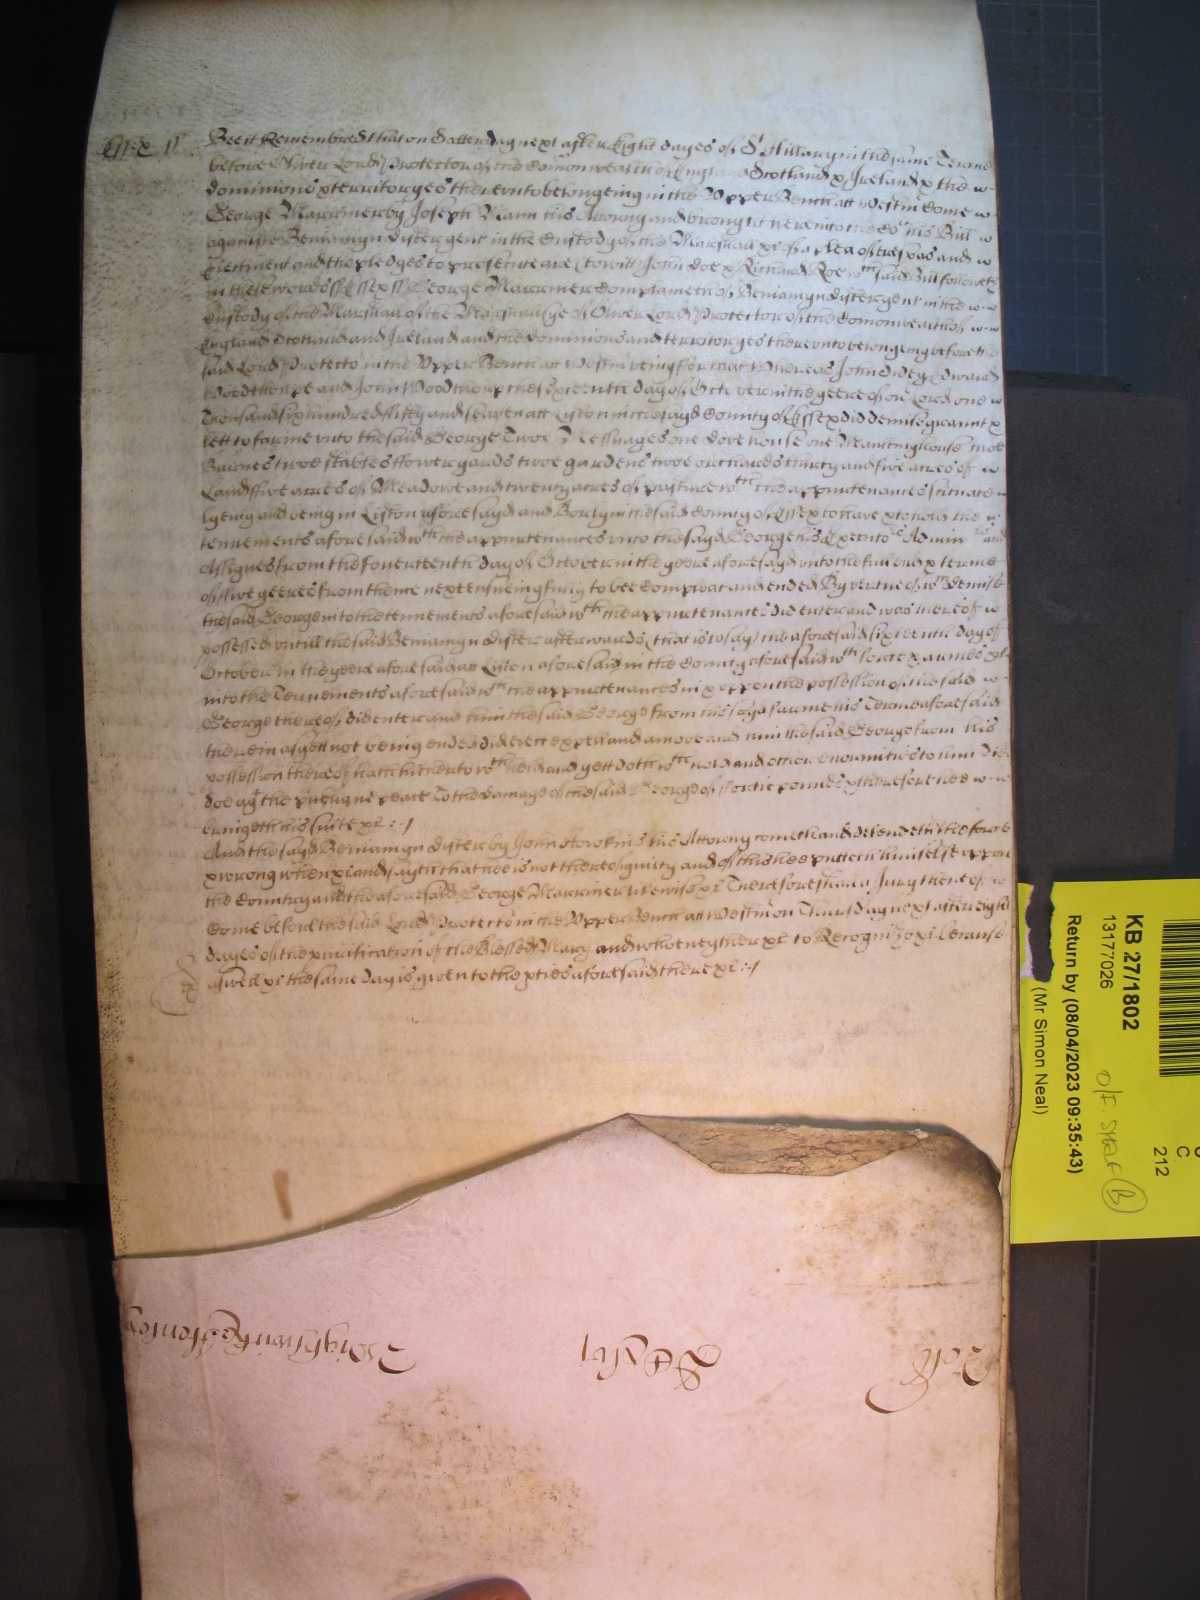 Essex ss Bee it Remembred that on Satterday next after Eight dayes of St Hillary in the same Terme
before Oliver Lord Protector of the Comonwealth of England Scotland & Ireland & the
dominions & territoryes therevnto belongeing in the Vpper Bench att Westm Come
George Marrmer by Joseph Mann his Attorny and brought here into the Co his Bill
against Beniamyn dister gent in the Custody of the Marshall &c of a plea of trespas and
Eiectment and the pledges to prosecute are (to witt) John doe & Richard Roe wch said Bill followeth
in these words ss Essex ss George Marrmer Complaineth of Beniamyn dister gent in the
Custody of the Marshall of the Marshalsye of Oliver Lord Protector of the Comonwealth of
England Scotland and Ireland and the dominions and territoryes therevnto belongeing before the
said Lord Protector in the Vpper Bench att Westm being ffor that Whereas John didey Edward
Woodthorpe and John Woodthorp the sixteenth day of October in the yeere of or Lord one
Thousand six hundred fifty and seaven att Liston in the sayd County of Essex did demise graunt &
lett to farme vnto the said George Twoe Messuages one dove house one Maulting house twoe
Barnes twoe stables ffower yards twoe gardens twoe orchards thirty and five acres of
Land ffive acres of Meadowe and twenty acres of pasture wth the appurtenances scituate
lyeing and being in Liston aforesayd and Borly in the said County of Essex to have & to hold the
tennements aforesaid wth the appurtenances vnto the sayd George his Executors Admin and
Assignes from the fouerteenth day of October in the yeere aforesayd vnto the full end & terme
of five yeeres from thence next ensueing fully to bee compleat and ended By vertue of wch demise
the said George into the tennements aforesaid wth the appurtenances did enter and was thereof
possessed vntill the said Beniamyn dister afterwards (that is to say) the aforesaid sixteenth day of
October in the yeere aforesaid att Liston aforesaid in the County aforesaid wth force & armes &c
into the Tennements aforesaid wth the appurtenances in & vppon the possession of the said
George thereof did enter and him the said George from his sayd farme his Terme aforesaid
therein as yett not being ended did eiect expell and amove and him the said George from his
possession thereof hath hitherto wth held and yett doth wth hold and other enormities to him did
doe agt the publique peace To the damage of the said George of fortie pounds & therefore hee
bringeth his suite &c :-/
And the sayd Beniamyn dister by John Hawkins his Attorny cometh and defendeth the force
& wrong when &c and sayth that hee is not thereof guilty and of this hee putteth himselfe vppon
the Country and the aforesaid George Marrmer likewise &c Therefore lett a Jury thereof
Come before the said Lord Protector in the Vpper Bench att Westm on Thursday next after eight
dayes of the purification of the Blessed Mary and who neyther &c to Recognize &c because
aswell &c the same day is given to the pties aforesaid there &c :-/
KB 27/1802
13177026
Return by (08/04/2023 09:35:43)
(Mr Simon Neal)
C
212